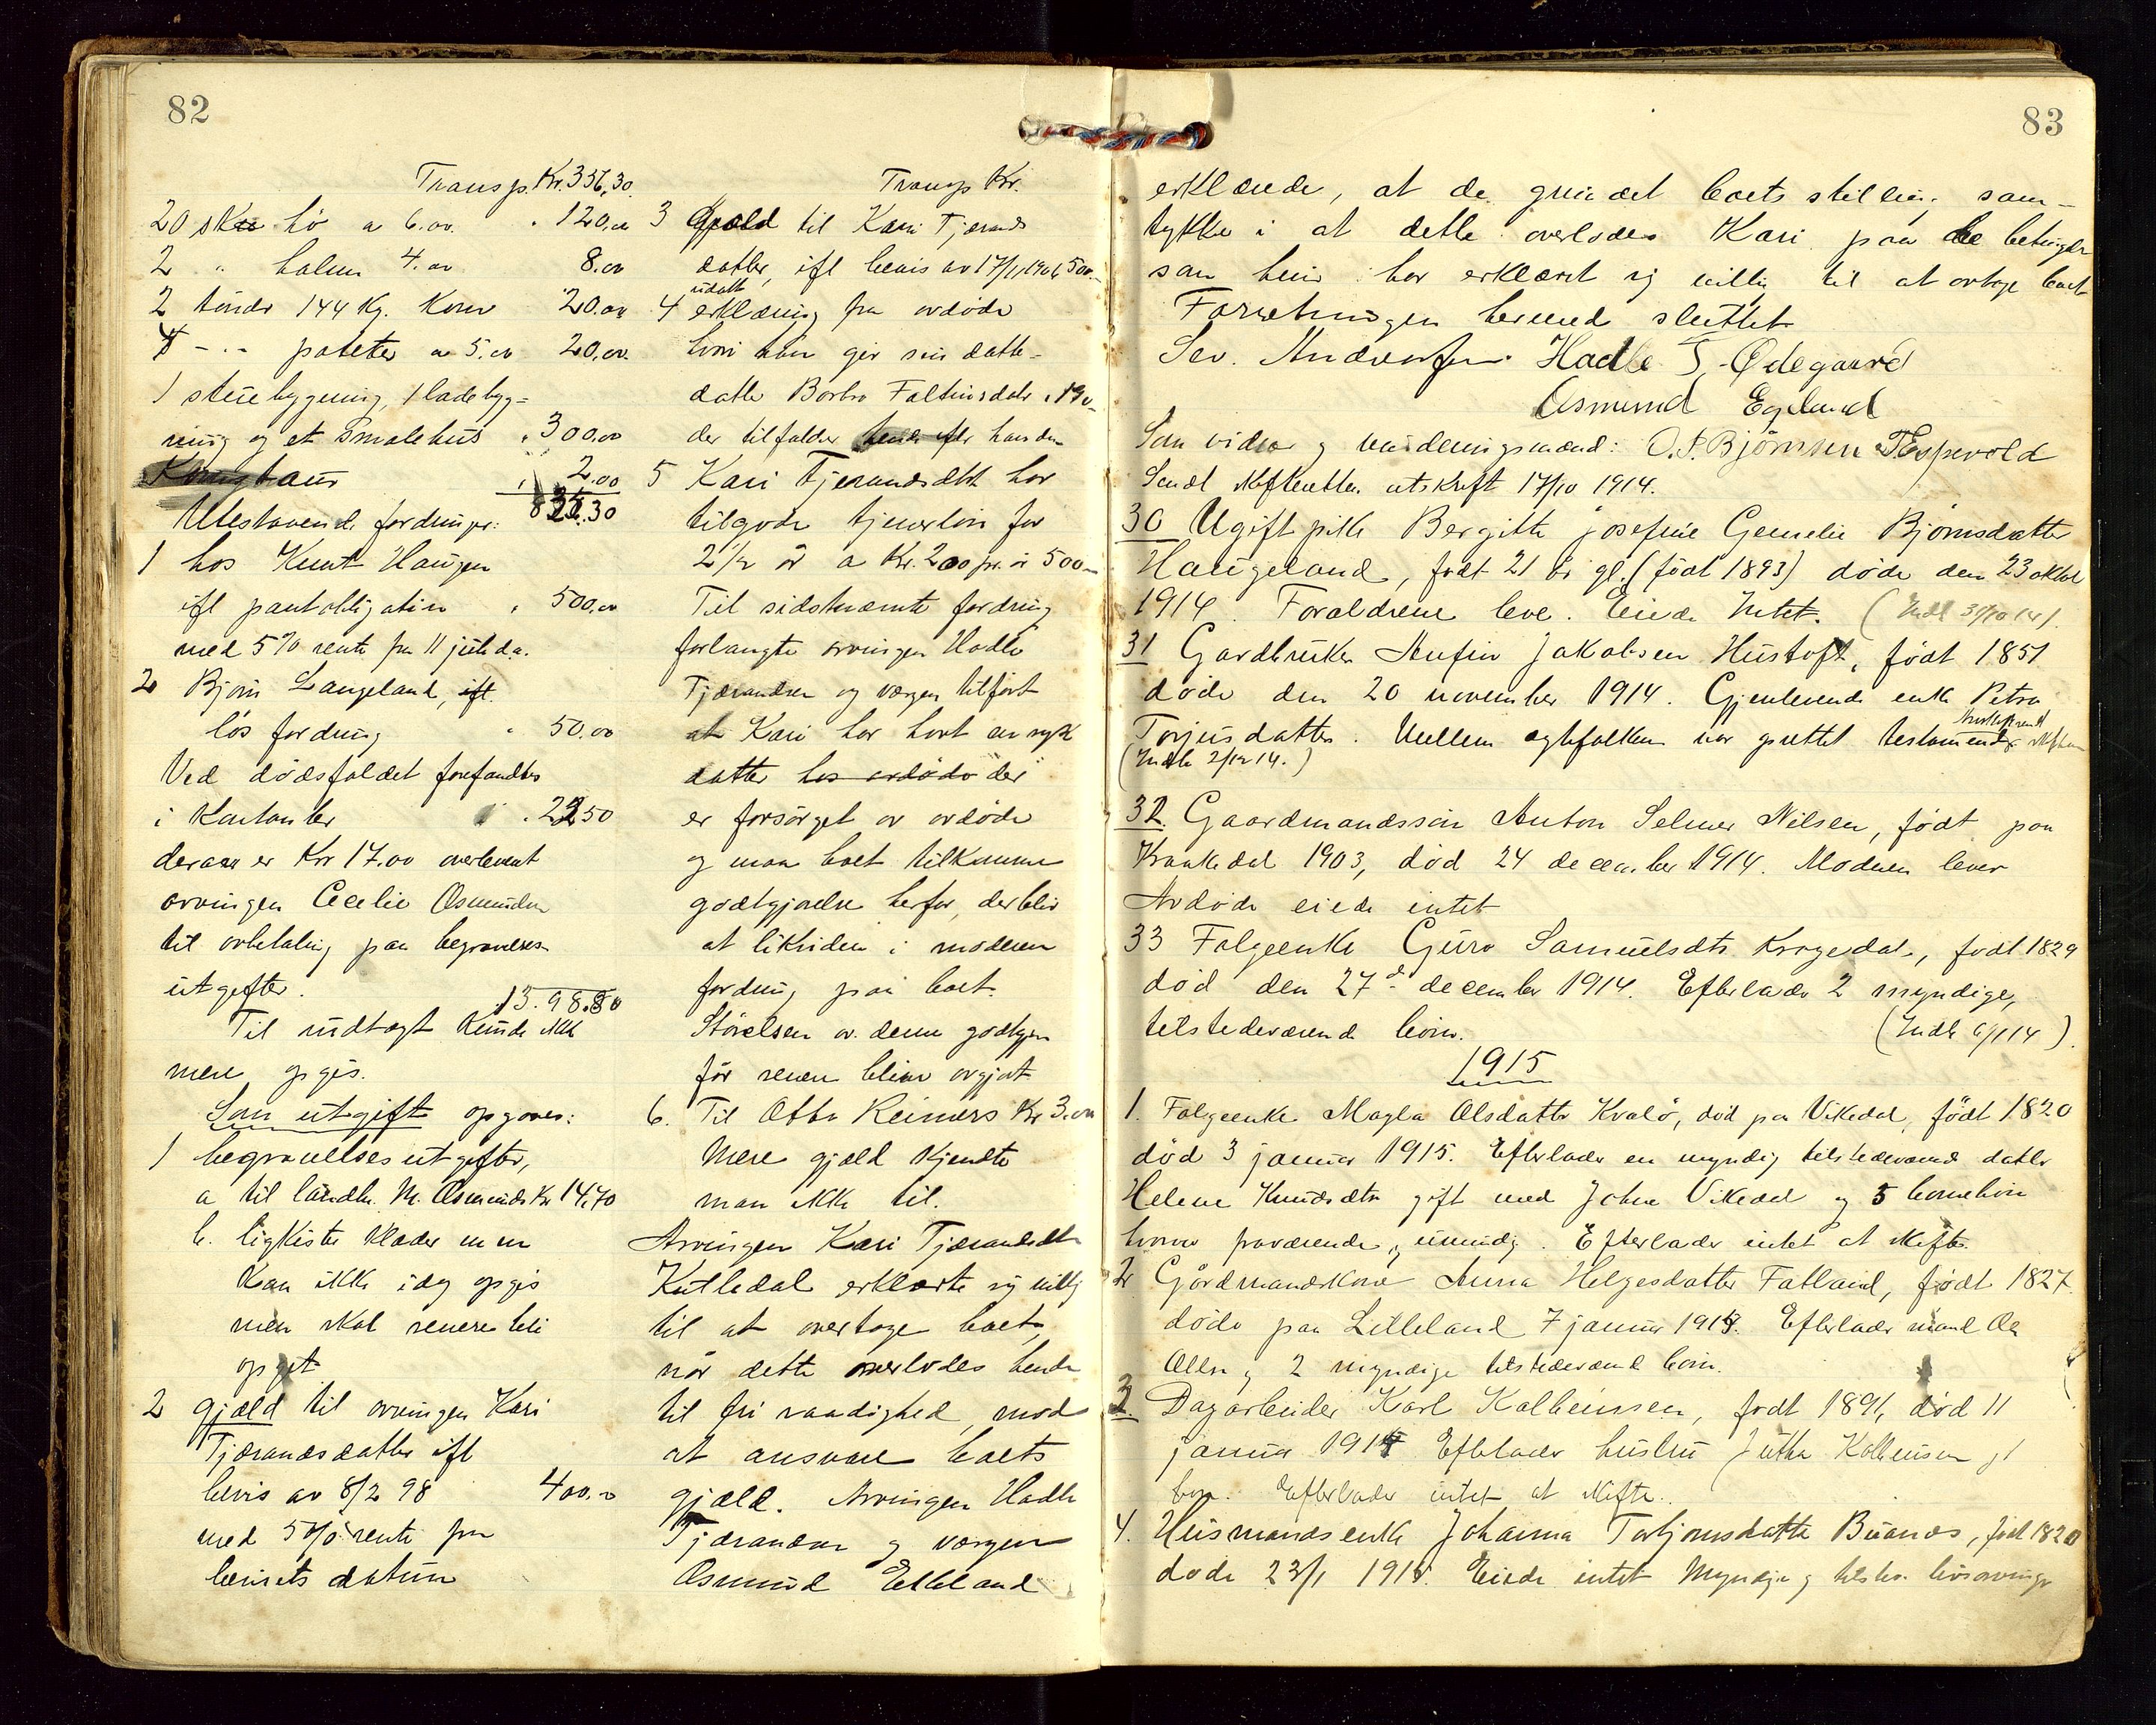 82
Transp. Kr. 356,30
20 skr hö a 6.00 " 120,00
2 " halm 4.00 8.00
2 tönder 144 Kg. Korn 20.00
4 - " - poteter a 5.00 20,00
1 stuebygning, 1 ladebyg-
ning og et smalehus " 300,00
2.00
Utestaaende fordringer: 826.30
1 hos Knut Haugen
ifl pantobligation " 500,00
med 5% rente fra 11 juli d.a.
2 Bjørn Langeland, ifl.
løs fordring " 50.00
Ved dödsfaldet forefandtes
i Kontanter " 22.50
derav er Kr 17.00 overlevert
arvingen Cecelie Osmundsen
til avbetaling paa begravelses
utgifter.
1398.80
Til indtægt kunde ikke
mere opgis.
Som utgift opgaves:
1 begravelses utgifter,
a til landh. M. Osmunds Kr 14,70
b. ligkiste klæder m m
Kan ikke idag opgis
men skal senere bli
opgit
2 gjæld til arvingen Kari
Tjærandsdatter ifl
bevis av 8/2 98 400.00
med 5% rente fra
bevisets datum
Transp Kr.
3 Gjæld til Kari Tjærands
datter, ifl bevis av 17/11 1906 500.-
4 udatt erklæring fra avdöde
hvori han gir sin datter-
datter Barbro Faltinsdatr
der tilfalder hende efter hans död
5 Kari Tjerandsdtt har
tilgode tjenerlön for
2 1/2 år a Kr. 200 pr. år 500.-
Til sidstnævnte fordring
forlangte arvingen Hadle
Tjærandsen og værgen tilført
at Kari har havt en syk
datter hos avdöde der
er forsörget av avdöde
og maa boet tilkomme
godtgjørelse herfor, der blir
at likvidere i moderen
fordring paa boet.
Störelsen av denne godtgjør
får senere bliver avgjort
6. Til Otto Reimers Kr 3.00
Mere gjæld kjendte
man ikke til.
Arvingen Kari Tjærandsdtr
Kutledal erklærte sig villig
til at overtage boet,
når dette overlodes hende
til fri raadighed mod
at ansvare boets
gjæld. Arvingen Hadle
Tjærandsen og værgen
Osmund Egeland
83
erklærede, at de grundet boets stilling sam-
tykke i at dette overlodes Kari paa de betingelser
som hun har erklæret sig villig til at ovtage boet
Forretningen hermed sluttet
Sev. Andersen Hadle T. Ödegaard
Osmund Egeland
Som vidner og vurderingsmænd: O. P. Bjørnsen T. Espevold
Sendt skifteretten utskrift 17/10 1914.
30 Ugift pike Bergitte Josefine Gemelie Bjørnsdatter
Haugeland, født 21 år gl. (född 1893) döde den 23 oktober
1914. Foraldrene leve. Eiede Intet. (Indb 31/10 14).
31 Gardbruker Anfin Jakobsen Hustoft, født 1851
döde den 20 november 1914. Gjenlevende enke Petra
Torjusdatter. Mellem egtefolkene var oprettet testamente
(Indb 2/12 14.)
32. Gaardmandssön Anton Selmer Nilsen, født paa
Krakedal 1903, död 24 december 1914. Moderen lever
Avdöde eiede intet
33 Folgeenke Guro Samuelsdtr Krogedal, født 1829
död den 27de december 1914. Efterlader 2 myndige,
tilstedeværende börn. (Indb 6/1 14).
1915
1. Folgeenke Magla Olsdatter Kvalö, död paa Vikedal, född 1820
död 3 januar 1915. Efterlader en myndig tilstedeværende datter
Helene Knudsdtr gift med Johan Vikedal og 5 barnebörn
hvorav fraværende og umyndig. Efterlader intet at skifte.
2. Gårdmandskone Anna Helgesdatter Fatland, född 1827
döde paa Lilleland 7 januar 1915. Efterlader mand Ole
Olsen og 2 myndige tilstedeværende börn.
3. Dagarbeider Karl Kolbeinsen, født 1891, död 11
januar 1915 Efterlader hustru Jutha Kolbeinsen og 1
barn. Efterlader intet at skifte.
4. Husmandsenke Johanna Torbjörnsdatter Buanes, född 1820
döde 23/1 1915. Eiede intet Myndige og tilstev. livsarvinger